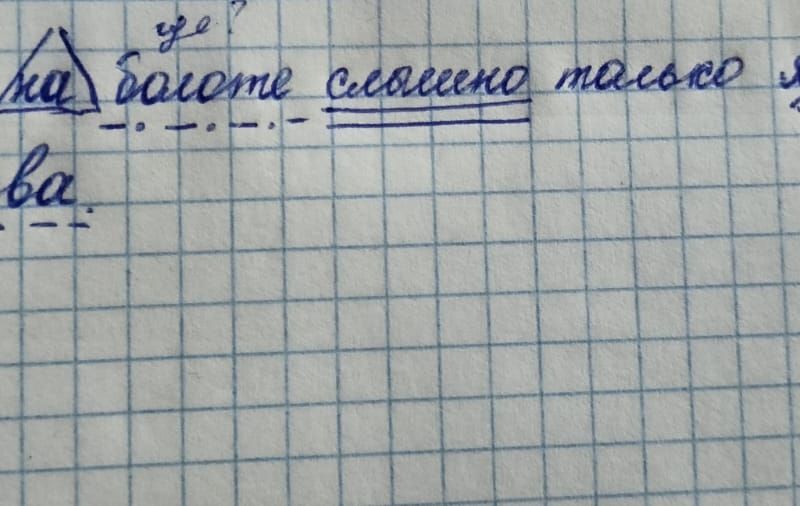 где?
на болоте слышно только я
ва.